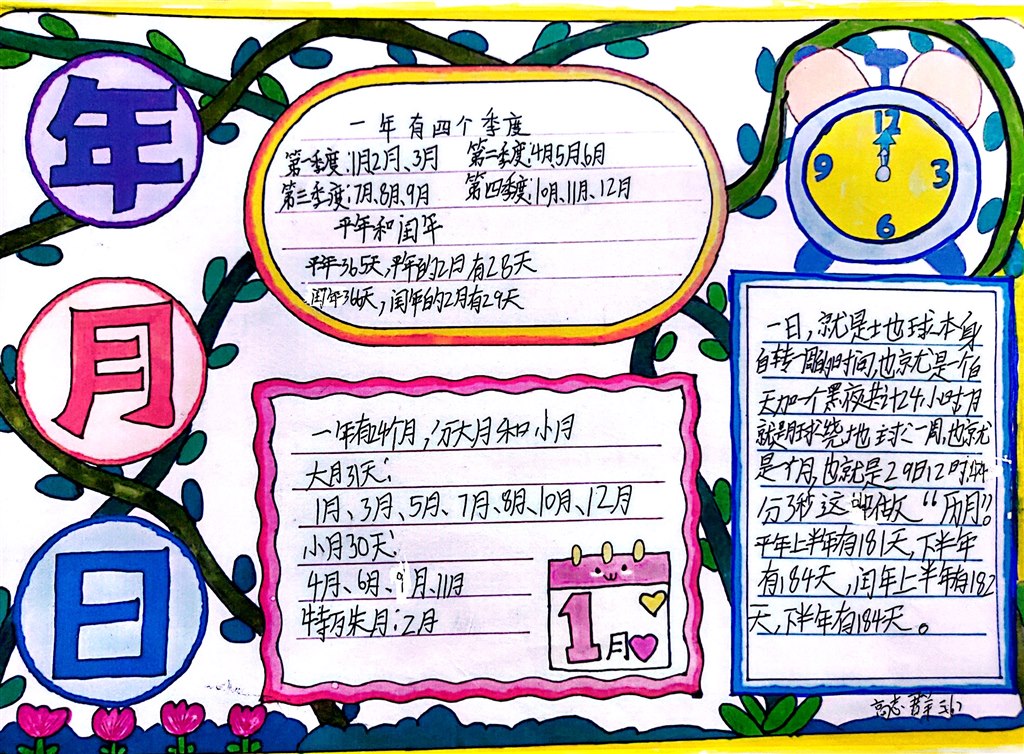 年
月
日
一年有四个季度
第一季度:1月2月、3月 第二季度:4月5月6月
第三季度:7月、8月、9月 第四季度:10月、11月、12月
平年和闰年
平年365天,平年的2月有28天
闰年366天,闰年的2月有29天
12
3
6
9
一年有个月,分大月和小月
大月31天:
1月、3月、5月、7月、8月、10月、12月
小月30天:
4月、6月、9月、11月
特万朱月:2月
1月
一日,就是地球本身
自转一周的时间,也就是一个白
天加一个黑夜共计24小时月
就是月球绕地球一周,也就
是一个月,也就是29日12时44
分3秒这叫做“历月”。
平年上半年有181天,下半年
有184天,闰年上半年有182
天,下半年有184天。